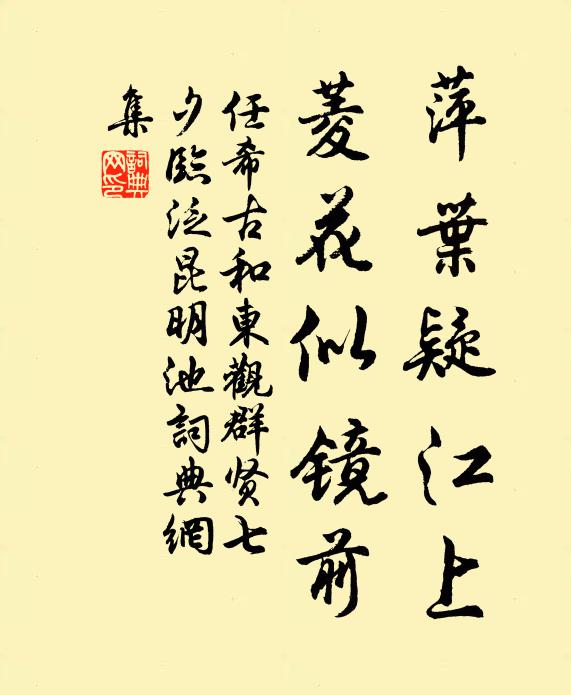 萍葉疑江上
菱花似镜前
任希古和東觀群贤七
夕臨泛昆明池詞典網
集
詞典网印